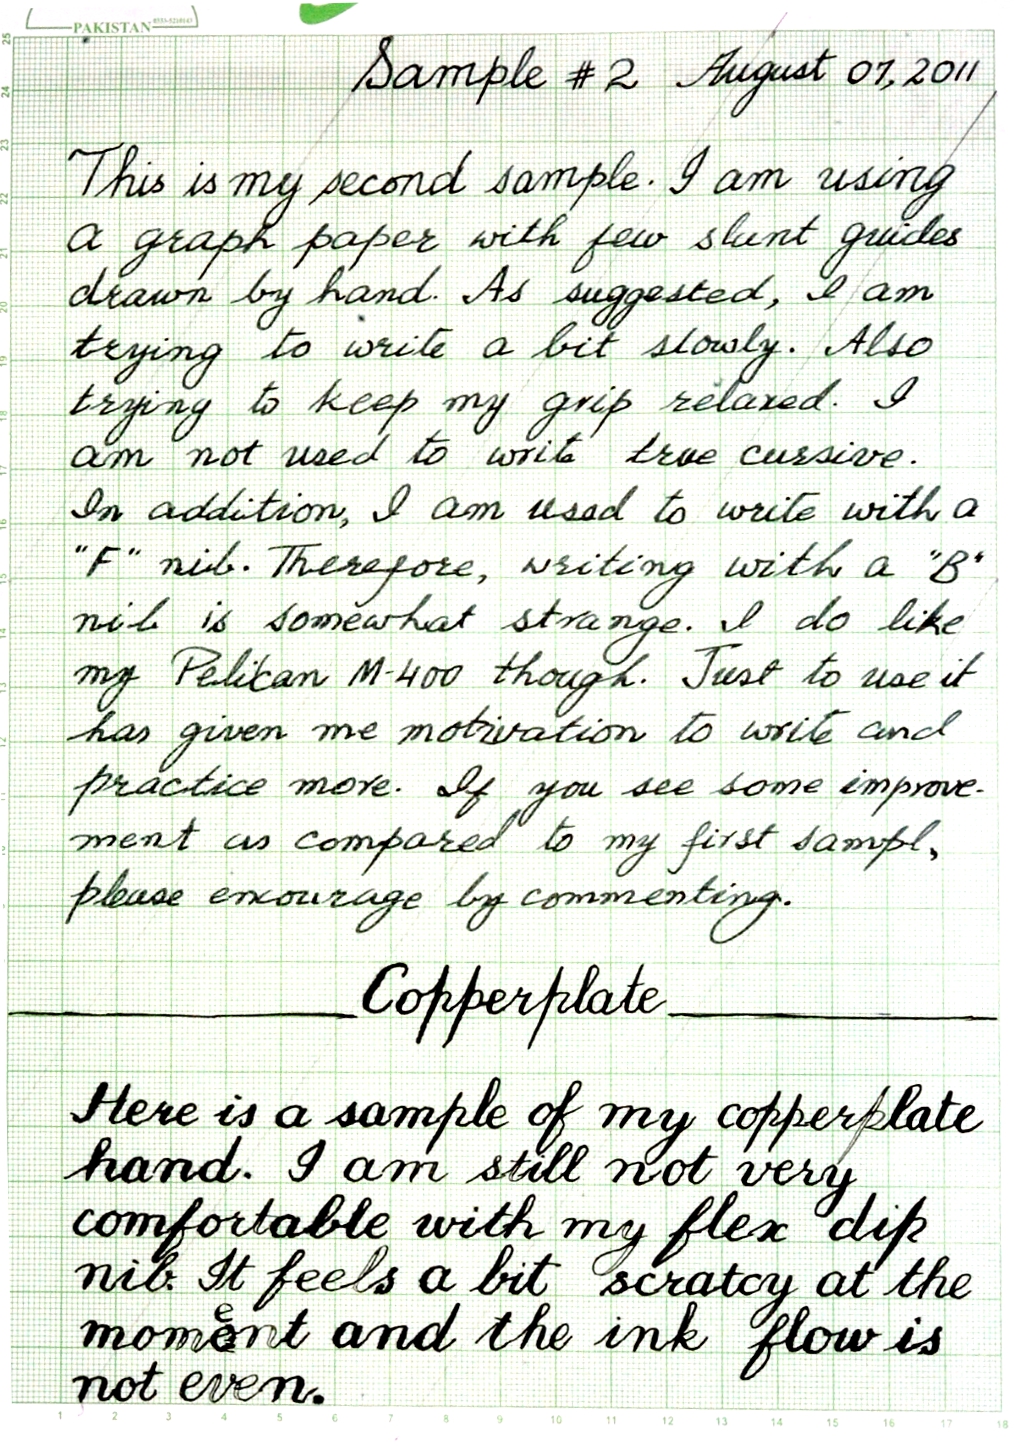 PAKISTAN
Sample #2 August 07, 2011
This is my second sample. I am using
a graph paper with few slant guides
drawn by hand. As suggested, I am
trying to write a bit slowly. Also
trying to keep my grip relaxed. I
am not used to write true cursive.
In addition, I am used to write with a
"F" nib. Therefore, writing with a "B"
nib is somewhat strange. I do like
my Pelican M-400 though. Just to use it
has given me motivation to write and
practice more. If you see some improve-
ment as compared to my first sampl,
please encourage by commenting.
Copperplate
Here is a sample of my copperplate
hand. I am still not very
comfortable with my flex dip
nib. It feels a bit scratcy at the
moment and the ink flow is
not even.
25
24
23
22
21
20
19
18
17
16
15
14
13
12
11
10
1 2 3 4 5 6 7 8 9 10 11 12 13 14 15 16 17 18